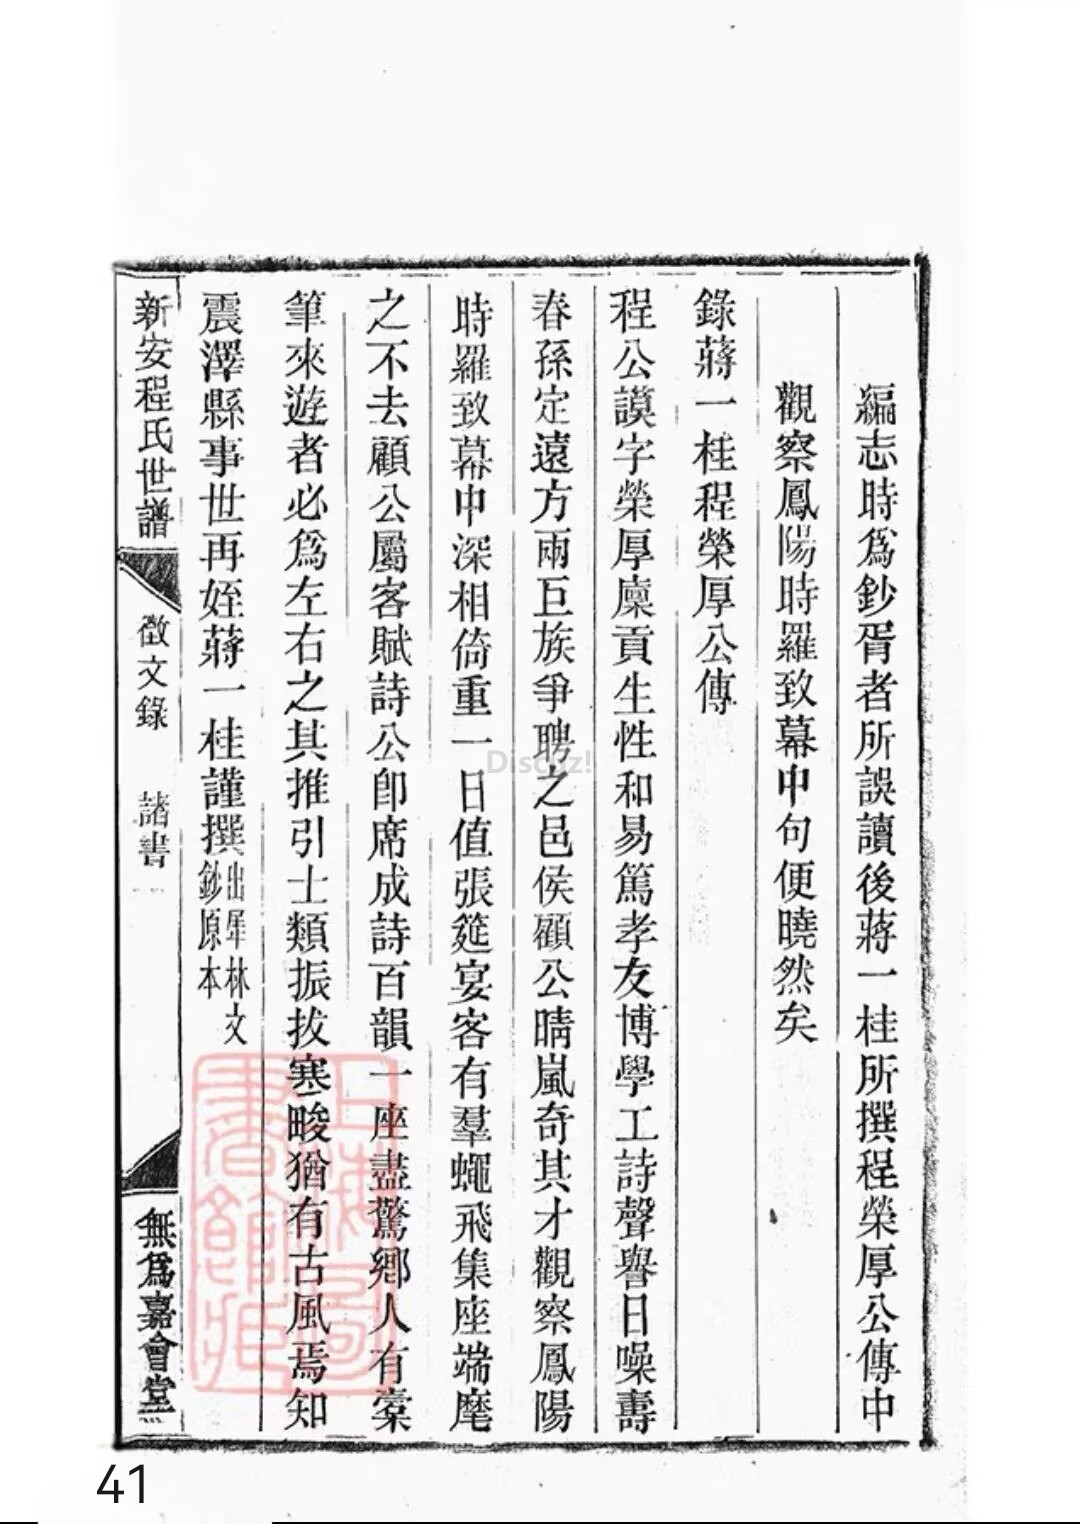 編志時爲鈔胥者所誤讀後蔣一桂所撰程榮厚公傳中
觀察鳳陽時羅致幕中句便曉然矣
錄蔣一桂程榮厚公傳
程公謨字榮厚廩貢生性和易篤孝友博學工詩聲譽日噪壽
春孫定遠方兩巨族爭聘之邑侯顧公晴嵐奇其才觀察鳳陽
時羅致幕中深相倚重一日值張筵宴客有羣蠅飛集座端麾
之不去顧公屬客賦詩公卽席成詩百韻一座盡驚鄉人有橐
筆來遊者必爲左右之其推引士類振拔寒畯猶有古風焉知
震澤縣事世再姪蔣一桂謹撰出犀林文
鈔原本
新安程氏世譜
徵文錄 諸書
無爲嘉會堂
上海圖書館藏
Discuz!
41